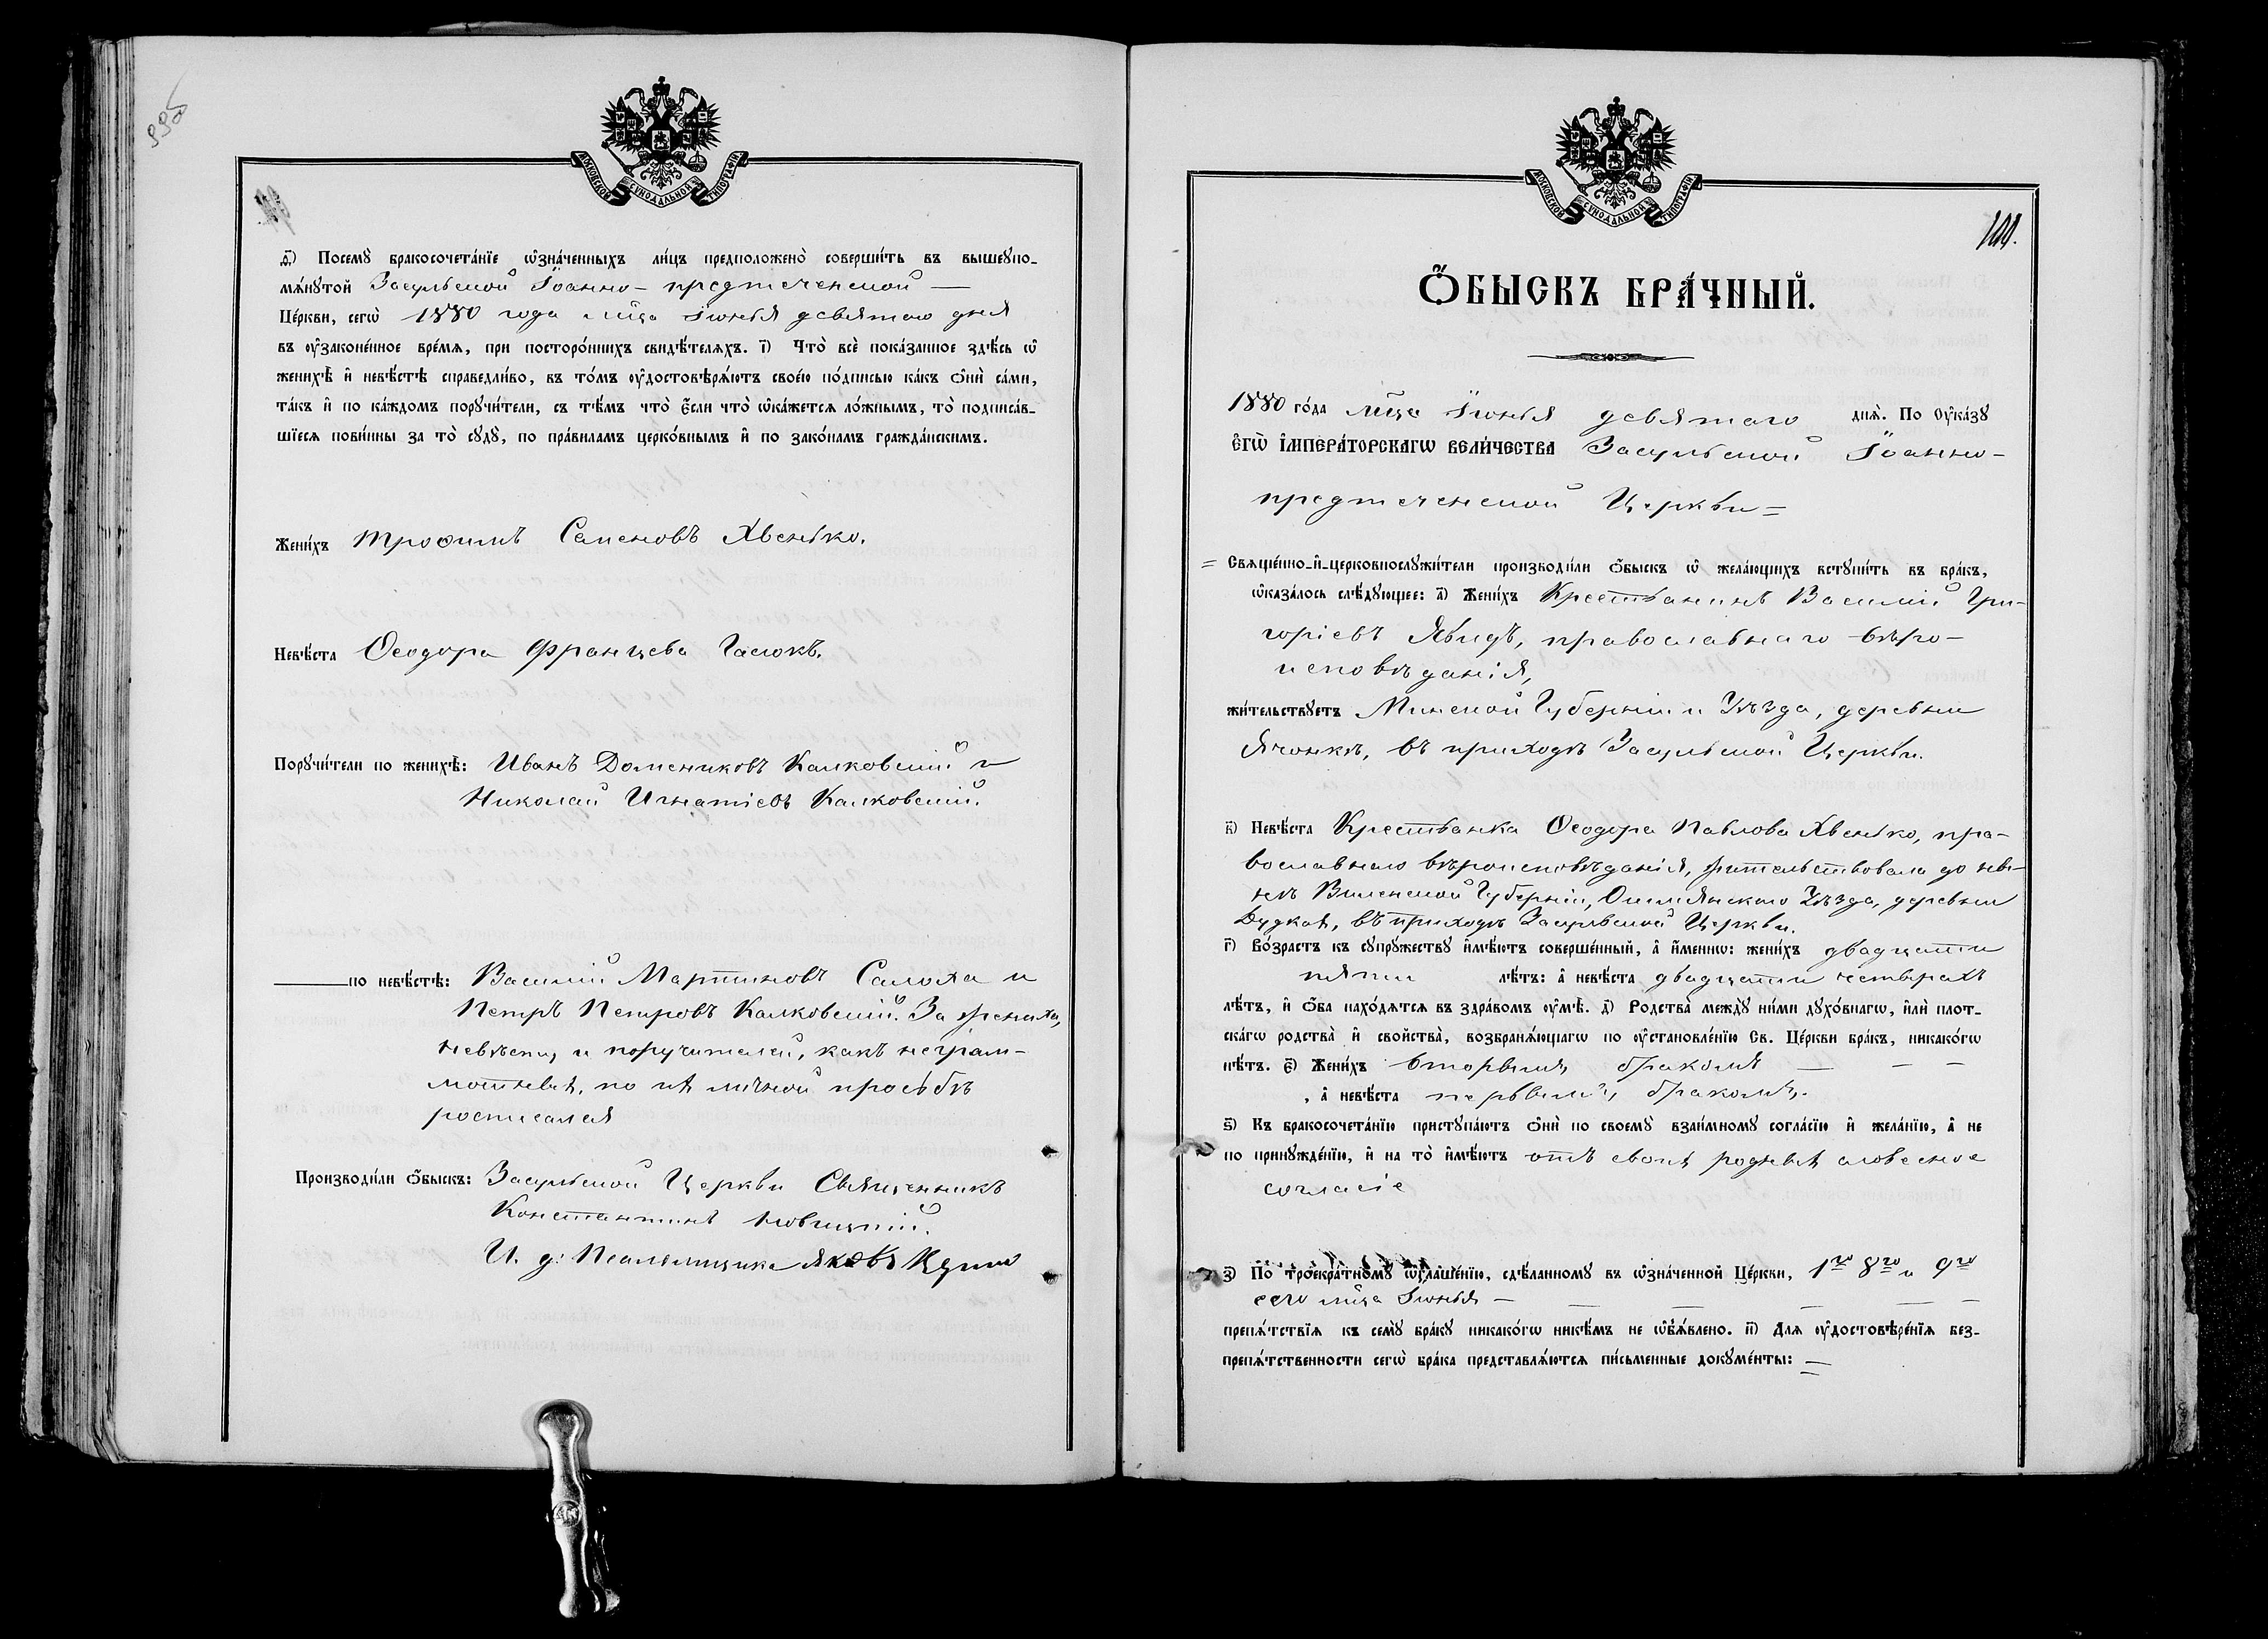 99об
МОСКОВСКОЙ СѴНОДАЛЬНОЙ ТИПОГРАФІИ
ѳ҃) Посемꙋ бракосочета́нїе ѡ҆зна́ченныхъ ли́цъ предположено̀ соверши́ть въ вышеꙋпо-
мѧ́нꙋтой Засульской Іоанно-предтеченской —
Це́ркви, сегѡ̀ 1880 года мц̃а Іюня девятаго дня
въ ᲂу҆законе́нное вре́мѧ, при посторо́ннихъ свидѣ́телѧхъ. і҃) Что̀ всѐ пока́занное здѣ́сь ѡ҆
женихѣ̀ и҆ невѣ́стѣ справедли́во, въ то́мъ ᲂу҆достовѣрѧ́ютъ свое́ю по́дписью ка́къ ѻ҆нѝ са́ми,
та́къ и҆ по ка́ждомъ порꙋчи́тели, съ тѣ́мъ что̀ є҆́сли что̀ ѡ҆ка́жетсѧ ло́жнымъ, то̀ подписа́в-
шїесѧ пови́нны за то̀ сꙋдꙋ̀, по пра́виламъ церко́внымъ и҆ по зако́намъ гражда́нскимъ.
Жени́хъ Трофимъ Семеновъ Хвенько.
Невѣ́ста Ѳеодора Францева Гасюкъ.
Порꙋчи́тели по женихѣ̀: Иванъ Домениковъ Калковскій и
Николай Игнатіевъ Калковскій.
по невѣ́стѣ: Василій Мартиновъ Салоха и
Петръ Петровъ Калковскій. За жениха,
невѣсту и поручителей, какъ неграм-
мотныхъ, по ихъ личной просьбѣ
росписался
Производи́ли ѻ҆́быскъ: Засульской Церкви Священникъ
Константинъ Новицкій.
И. д. Псаломщика Яковъ
МОСКОВСКОЙ СѴНОДАЛЬНОЙ ТИПОГРАФІИ
100.
Ѻ҆́БЫСКЪ БРА́ЧНЫЙ.
1880 го́да мц̃а Іюня девятаго днѧ̀. По ᲂу҆ка́зꙋ
Є҆ГѠ̀ И҆МПЕРА́ТОРСКАГѠ ВЕЛИ́ЧЕСТВА Засульской Іоанно-
предтеченской Церкви =
= Свѧще́нно-и҆-церковнослꙋжи́тели производи́ли ѻ҆́быскъ ѡ҆ жела́ющихъ встꙋпи́ть въ бра́къ,
ѡ҆каза́лось слѣ́дꙋющее: а҃) Жени́хъ Крестьянинъ Василій Гри-
горіевъ Явидъ, православнаго вѣро-
исповѣданія,
жи́тельствꙋетъ Минской Губерніи и Уѣзда, деревни
Ячонкѣ, въ приходѣ Засульской Церкви.
в҃) Невѣ́ста Крестьянка Ѳеодора Павлова Хвенько, пра-
вославнаго вѣроисповѣданія, жительствовала до ны-
нѣ Виленской Губерніи, Ошмянскаго Уѣзда, деревни
Дудкахъ, въ приходѣ Засульской Церкви.
г҃) Во́зрастъ къ сꙋпрꙋ́жествꙋ и҆мѣ́ютъ соверше́нный, а҆ и҆́меннѡ: жени́хъ двадцати
пяти лѣ́тъ: а҆ невѣ́ста двадцати четырехъ
лѣ́тъ, и҆ ѻ҆́ба нахо́дѧтсѧ въ здра́вомъ ᲂу҆мѣ̀. д҃) Родства̀ междꙋ̀ ни́ми дꙋхо́внагѡ, и҆лѝ плот-
ска́гѡ родства̀ и҆ свойства̀, возбранѧ́ющагѡ по ᲂу҆становле́нїю Св. Це́ркви бра́къ, никако́гѡ
нѣ́тъ. є҃) Жени́хъ вторымъ бракомъ — — —
, а҆ невѣ́ста первымъ бракомъ.
ѕ҃) Къ бракосочета́нїю пристꙋпа́ютъ ѻ҆нѝ по своемꙋ̀ взаи́мномꙋ согла́сїю и҆ жела́нїю, а҆ не
по принꙋжде́нїю, и҆ на то̀ и҆мѣ́ютъ отъ своихъ родныхъ словесное
согласіе
з҃) По троекра́тномꙋ ѡ҆глаше́нїю, сдѣ́ланномꙋ въ ѡ҆зна́ченной Це́ркви, 1го 8го и 9го
сего мц̃а Іюня — — — — — —
препѧ́тствїѧ къ семꙋ̀ бра́кꙋ никако́гѡ никѣ́мъ не ѡ҆б̾ѧ́влено. и҃) Длѧ ᲂу҆достовѣре́нїѧ без-
препѧ́тственности сегѡ̀ бра́ка представлѧ́ютсѧ пи́сьменные докꙋме́нты: =